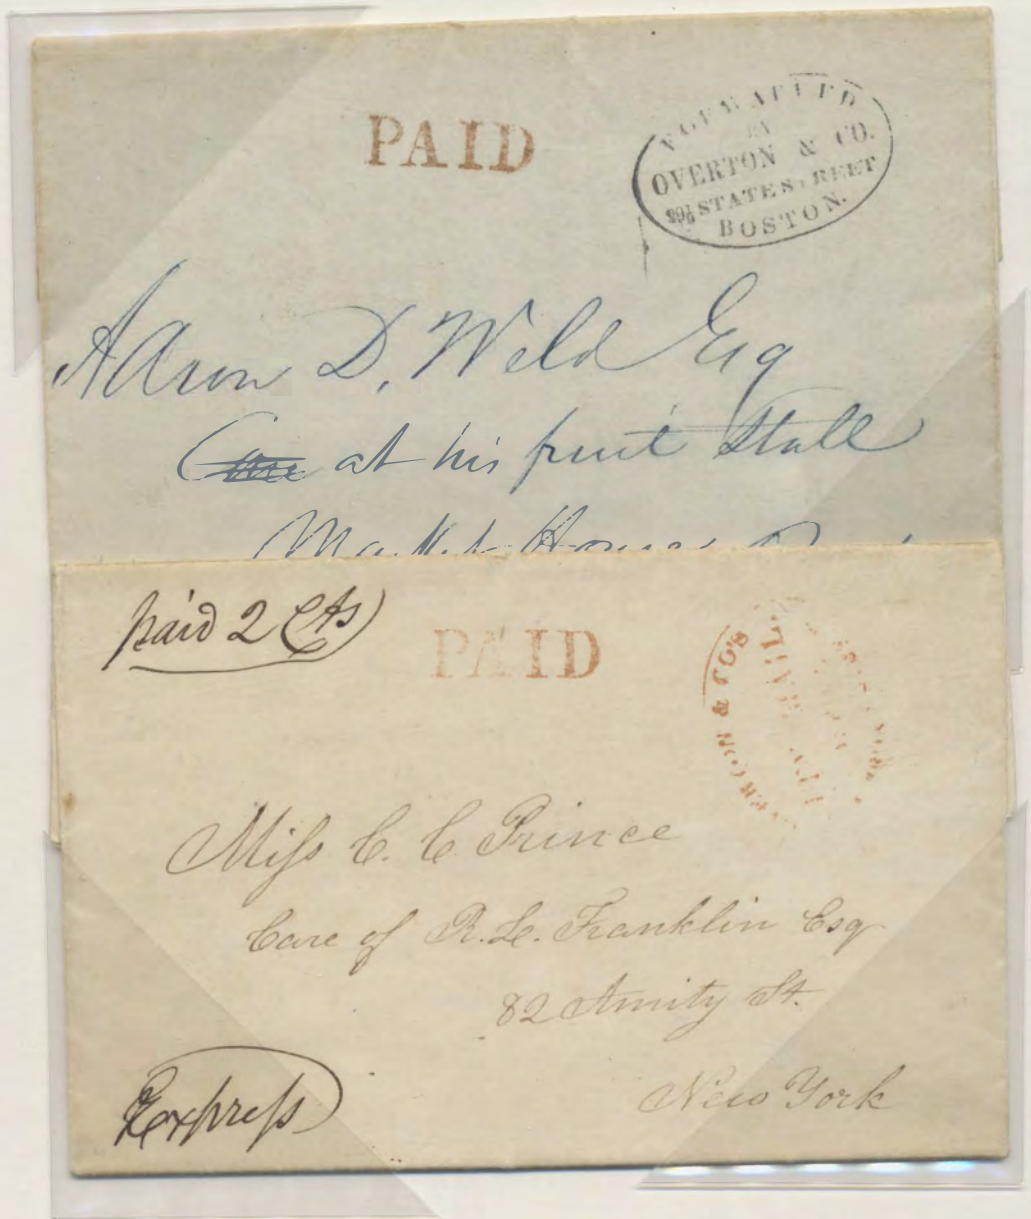 PAID
FORWARDED
BY
OVERTON & CO.
STATE STREET
BOSTON.
Aaron D. Weld Esq
at his fruit Stall
Market House
paid 2 Cts
PAID
& CO'S
MAIL
Miſs C. C. Prince
Care of R. L. Franklin Esq
82 Amity St.
New York
Expreſs